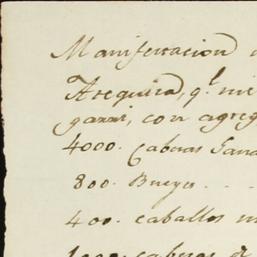 Manifestacion
Arequipa, q.l me
gazas, con agreg
4000. Cabezas Gana
800. Bueyes - -
400. caballos m
1000. cabezas d